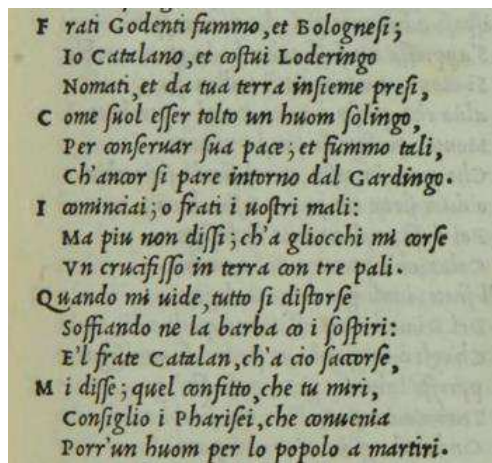 F rati Godenti fummo, et Bolognesi;
Io Catalano, et costui Loderingo
Nomati, et da tua terra insieme presi,
C ome suol esser tolto un huom solingo,
Per conseruar sua pace; et fummo tali,
Ch'ancor si pare intorno dal Gardingo.
I cominciai; o frati i uostri mali:
Ma piu non dissi; ch'a gliocchi mi corse
Vn crucifisso in terra con tre pali.
Quando mi uide, tutto si distorse
Soffiando ne la barba co i sospiri:
E'l frate Catalan, ch'a cio saccorse,
M i disse; quel confitto, che tu miri,
Consiglio i Pharisei, che conuenia
Porr'un huom per lo popolo a martiri.